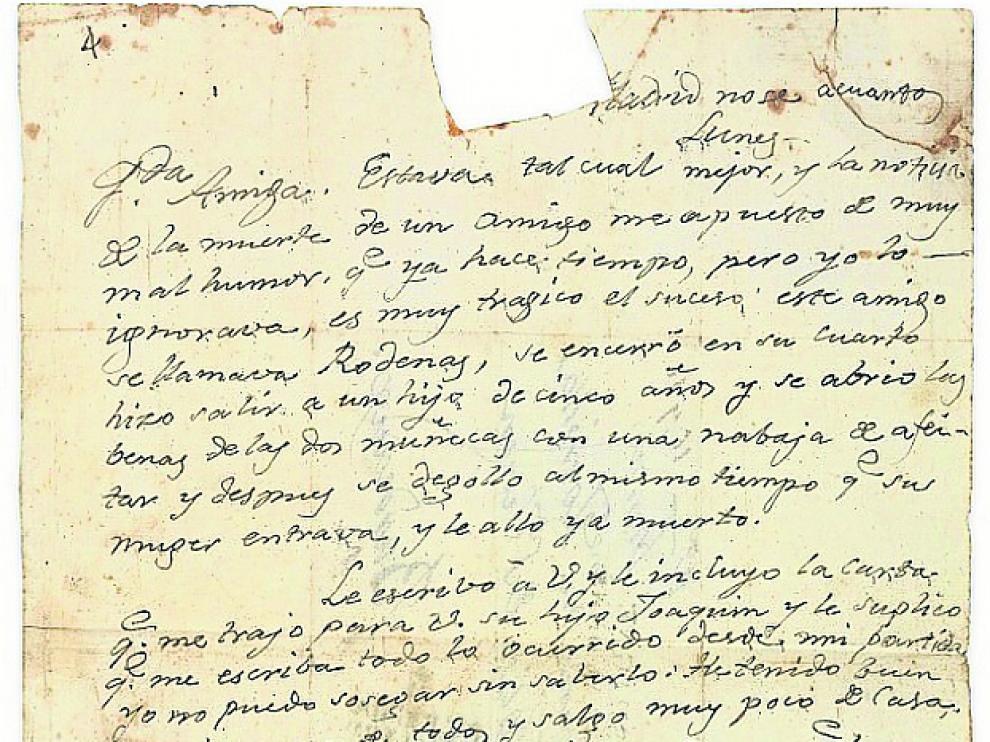 4
Madrid no se acuanto
Lunes.
Qda Amiga. Estava tal cual mejor, y la noticia
de la muerte de un amigo me a puesto de muy
mal humor, qe ya hace tiempo, pero yo lo —
ignorava, es muy tragico el suceso: este amigo
se llamava Rodenas, se encerrò en su cuarto
hizo salir a un hijo de cinco años y se abrio las
benas de las dos muñecas con una nabaja de afei-
tar y despues se degollo al mismo tiempo qe su
muger entrava, y le allo ya muerto.
Le escribo a V. y le incluyo la carta
qe me trajo para V. su hijo Joaquin y le suplico
qe me escriba todo lo ocurrido desde mi partida
yo no puedo sosegar sin saberlo. He tenido buen
todos y salgo muy poco de casa,